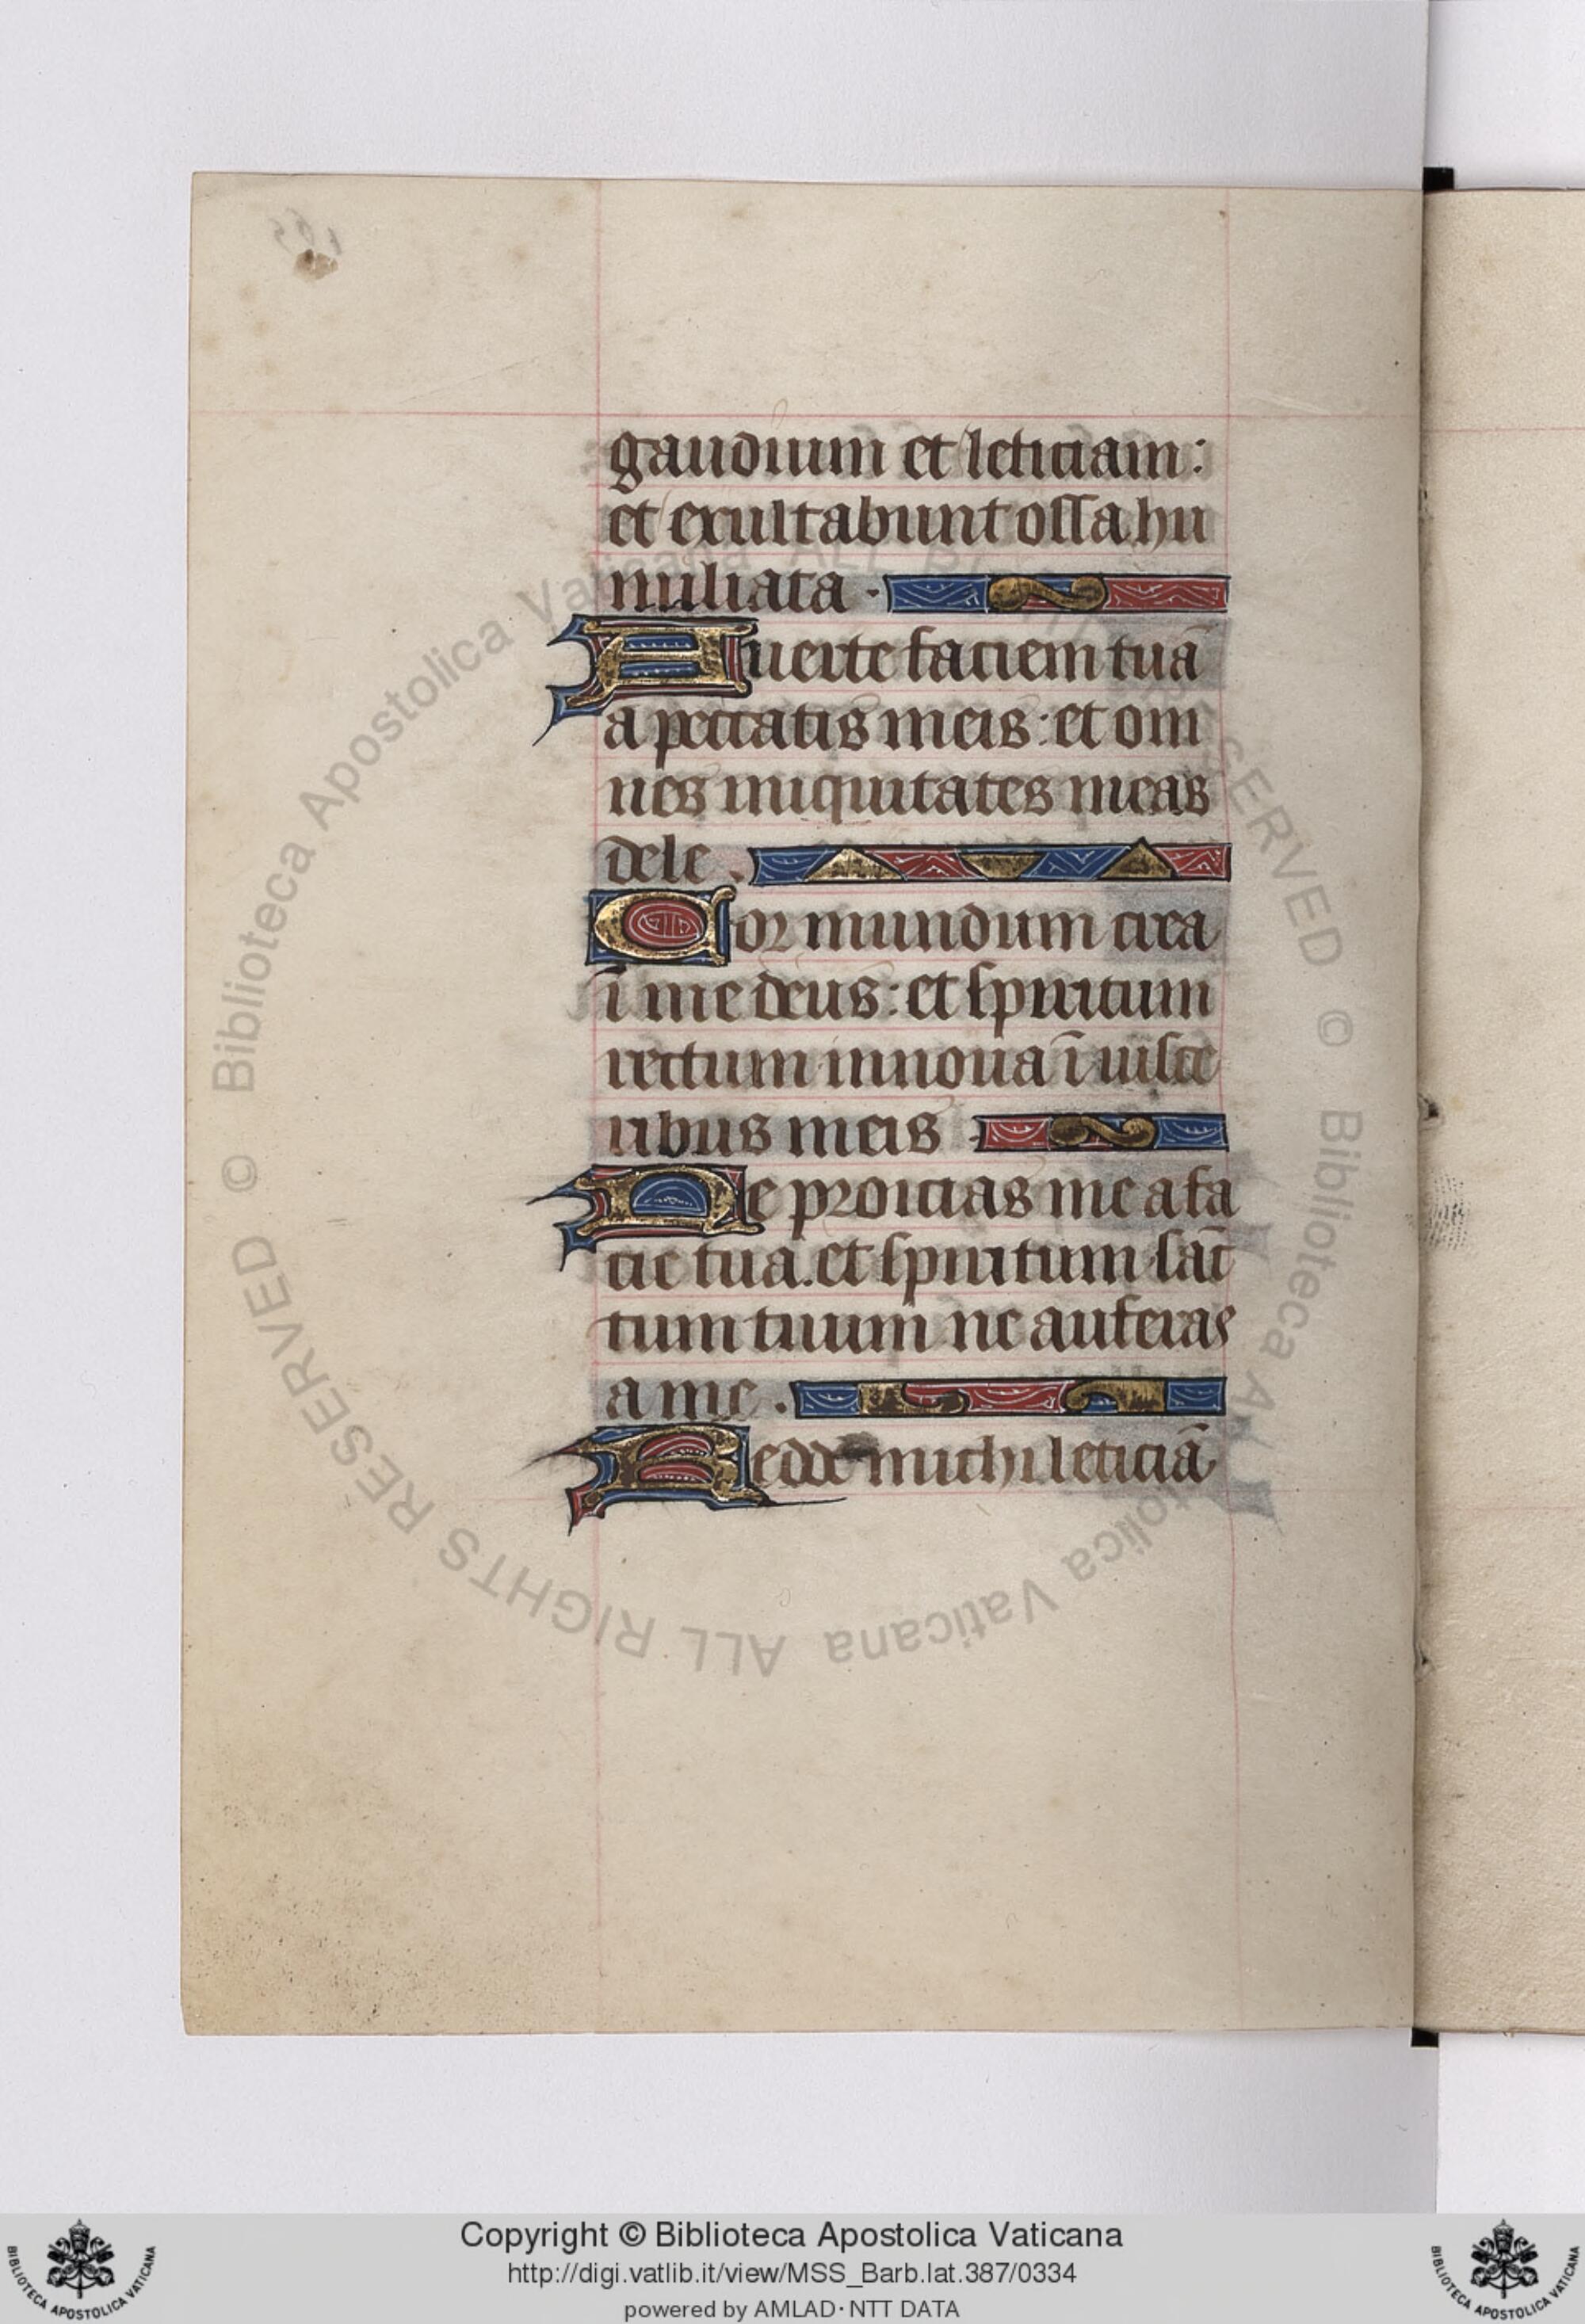 gaudium et leticiam:
et exultabunt ossa hu
miliata.
Auerte faciem tuā
a peccatis meis: et om
nes iniquitates meas
dele.
Cor mundum crea
ī me deus: et spiritum
rectum innoua ī uisce
ribus meis.
Ne proicias me a fa
cie tua. et spiritum sāc
tum tuum ne auferas
a me.
Redde michi leticiā
© Biblioteca Apostolica Vaticana ALL RIGHTS RESERVED © Biblioteca Apostolica Vaticana ALL RIGHTS RESERVED
Copyright © Biblioteca Apostolica Vaticana
http://digi.vatlib.it/view/MSS_Barb.lat.387/0334
powered by AMLAD·NTT DATA
BIBLIOTECA APOSTOLICA VATICANA
BIBLIOTECA APOSTOLICA VATICANA